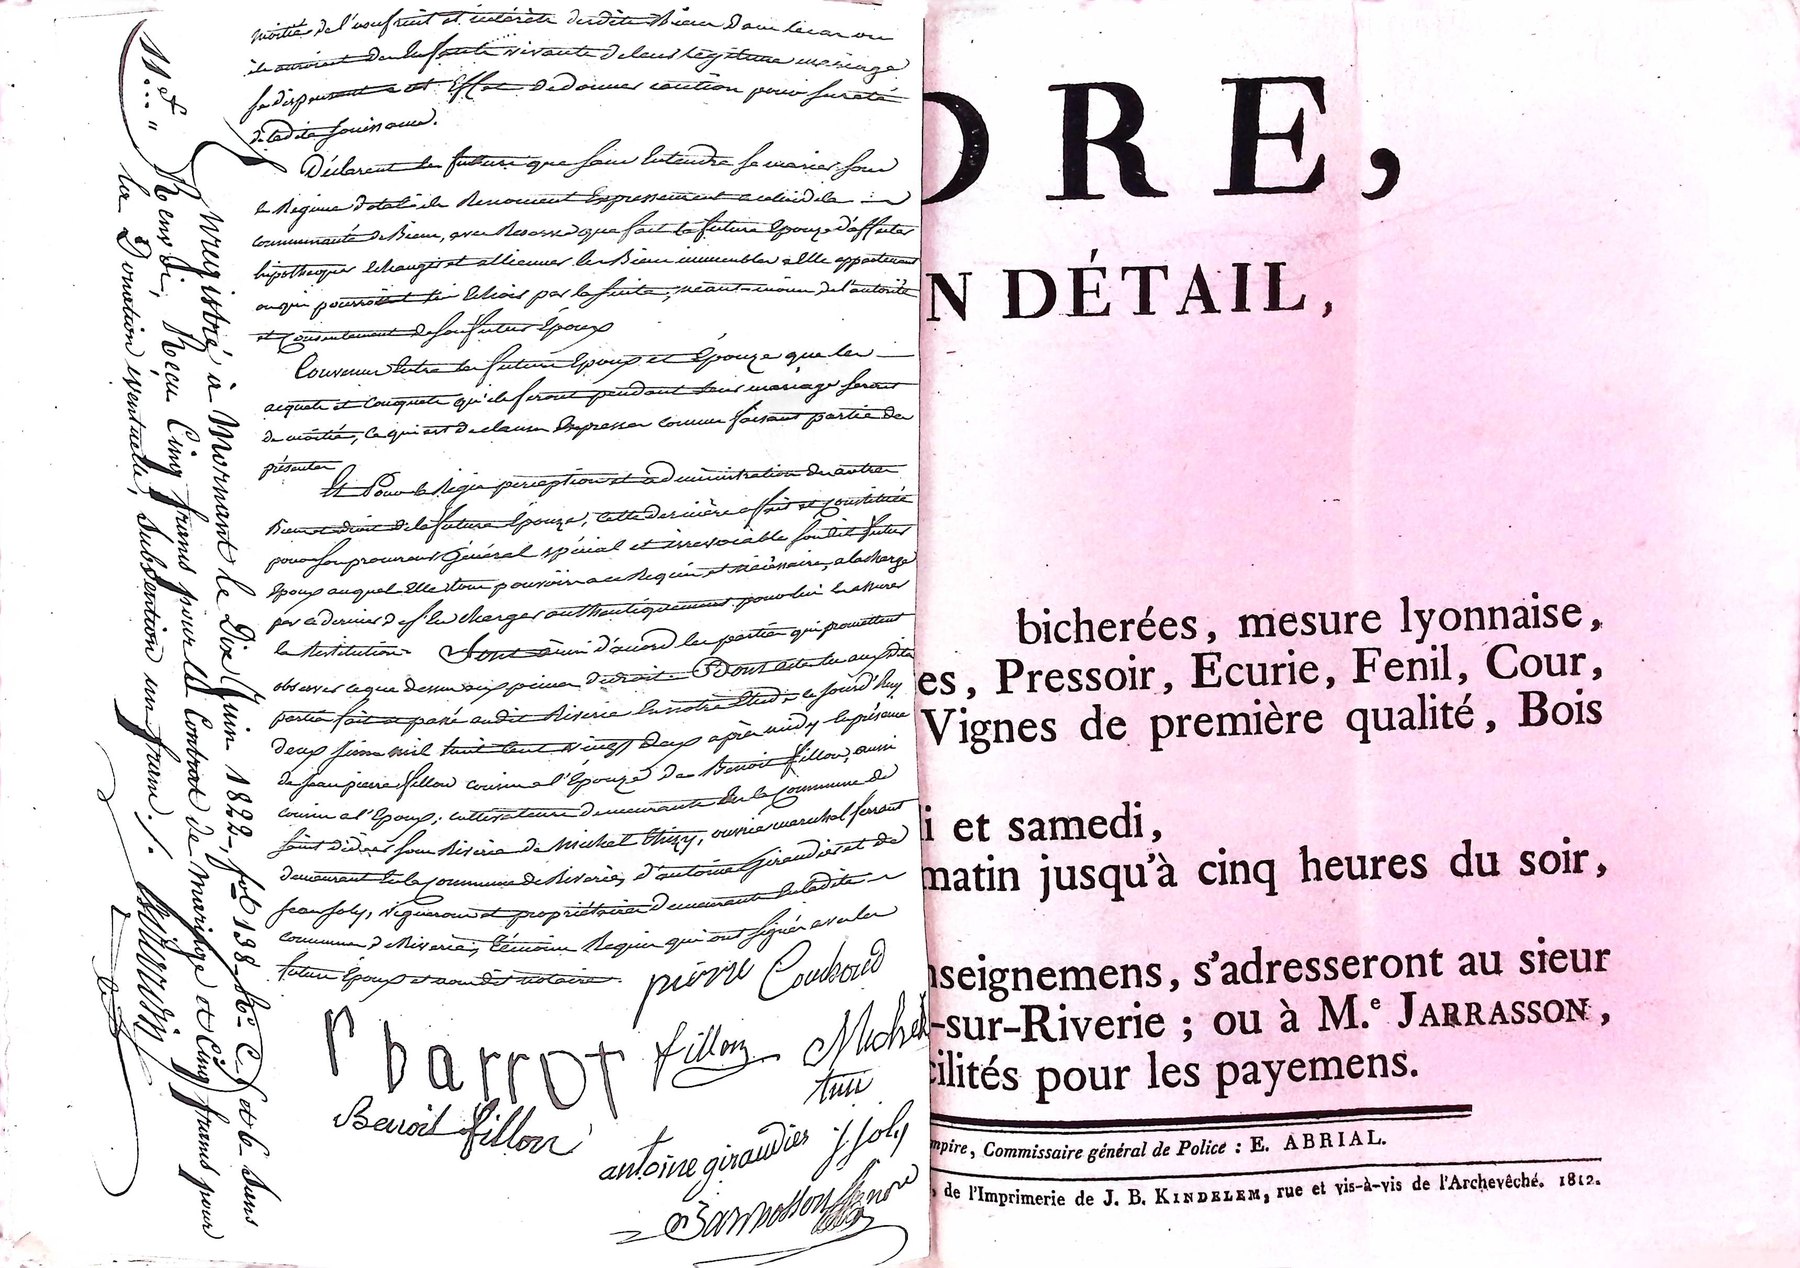 moitié de l'usufruit et intérêts desdits Biens Dans le cas ou
ils auroient des Enfants vivants de leur légitime mariage
se dispensant a cet Effet de donner caution pour sureté
de ladite jouissance.
Déclarent les futurs que leur Entendre se marier sous
le Régime dotal ils Renoncent Expressement a celui de la
communauté de Biens, avec Réserve que fait la future Epouze d'affecter
hipothequer Echanger et allienner les Biens immeubles a Elle appartenant
ou qui pourroient lui Echoir par la suite, néant-moins de l'autorité
et Consentement de son futur Epoux
Convenu Entre les futurs Epoux et Epouze que les
acquets et Conquets qu'ils feront pendant leur mariage seront
de moitié, ce qui est de clause Expresse comme faisant partie des
présentes
Et Pour la Régie perception et administration des autres
Biens et droits de la future Epouze, cette dernière a fait et constitué
pour son procureur Général spécial et irrévocable son dit futur
Epoux auquel Elle donne pouvoir a ce Requis et nécessaire, a la charge
par ce dernier de s'En charger authentiquement pour lui En assurer
la Restitution. Sont ainsi d'acord les parties qui promettent
observer ce que dessus aux peines de droit. Dont acte lu auxdites
parties fait et passé audit Riverie En notre Etude ce jourd'huy
deux juin mil huit cent vingt deux après midy En présence
de Jean pierre fillon cousin a l'Epouze de Benoit fillon, aussi
cousin a l'Epoux, cultivateurs demeurants En la Commune de
Saint didier sous Riverie de Michel Thizy, ouvrier marechal ferrant
demeurant En la Commune de Riverie, d'antoine Giraudier et de
Jean Joly, vignerons et propriétaires demeurants En ladite
commune de Riverie, témoins Requis qui ont signés avec les
futurs Epoux et nous dit notaire.
pierre Couhoud
P barrot fillon Michel
Benoit fillon
antoine giraudier j joly
Jarrasson
11... et
Enregistré à Mornant le Dix Juin 1822, fol. 138 Ro. C. 5 et 6 Sans
Renvoi, Reçu Cinq francs pour le Contrat de mariage et Cinq francs pour
la Donation éventuelle, Subvention un franc.
DRE,
N DÉTAIL,
bicherées, mesure lyonnaise,
es, Pressoir, Ecurie, Fenil, Cour,
Vignes de première qualité, Bois
i et samedi,
matin jusqu'à cinq heures du soir,
nseignemens, s'adresseront au sieur
-sur-Riverie ; ou à M.e JARRASSON,
cilités pour les payemens.
mpire, Commissaire général de Police : E. ABRIAL.
, de l'Imprimerie de J. B. KINDELEM, rue et vis-à-vis de l'Archevêché. 1812.